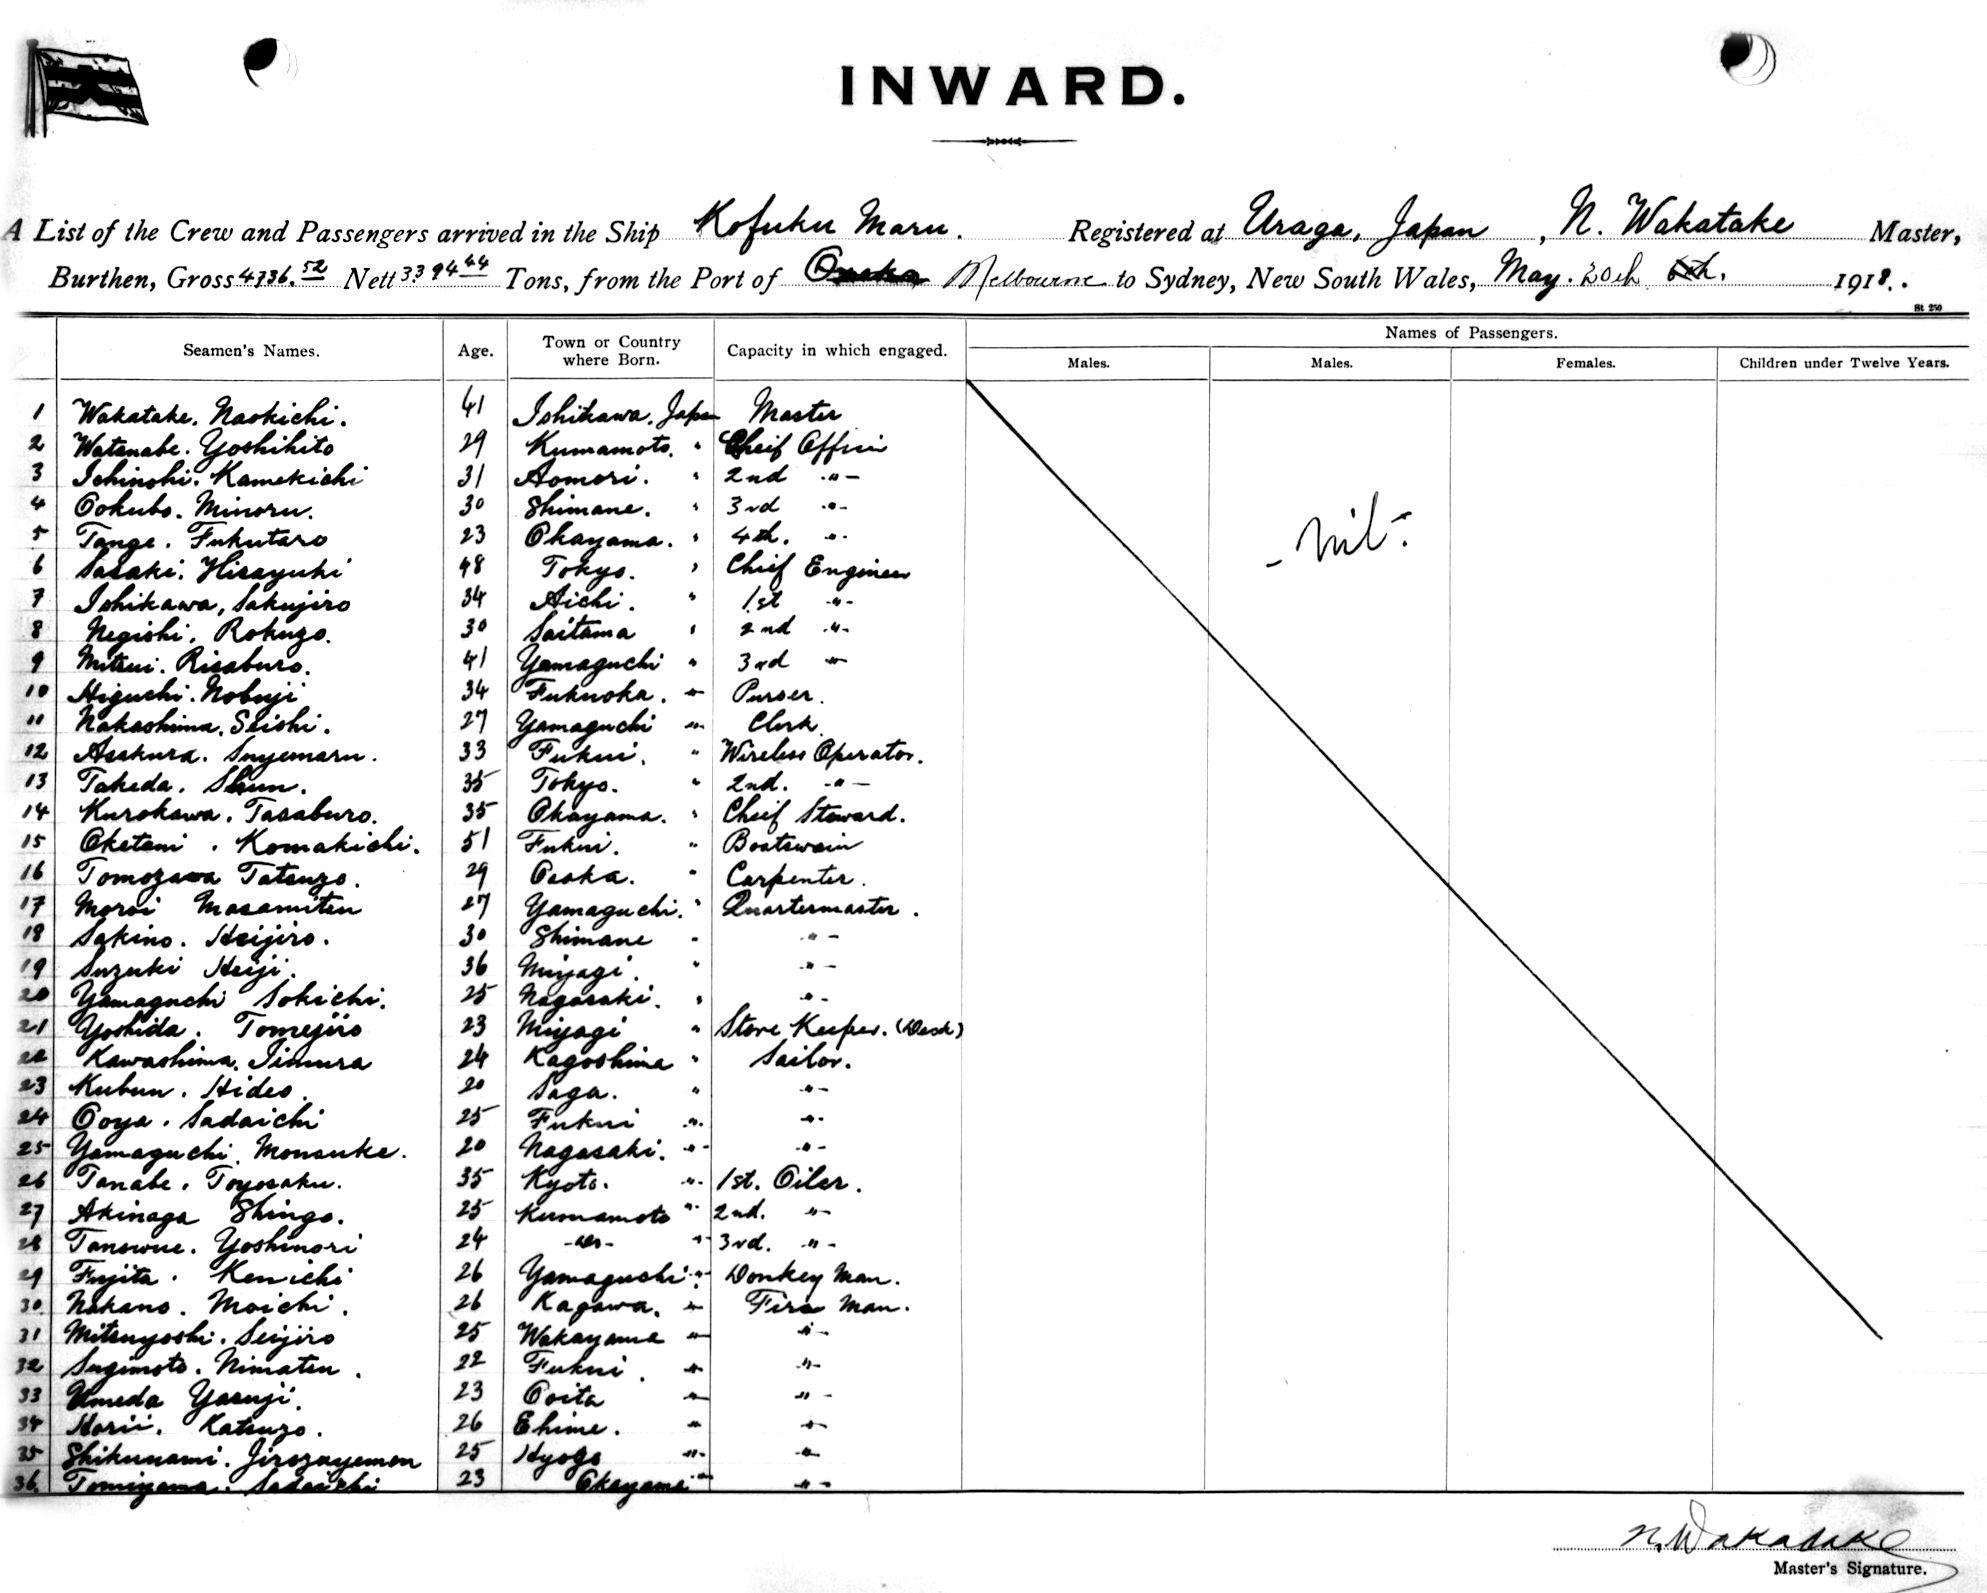 INWARD.
A List of the Crew and Passengers arrived in the Ship Kofuku Maru. Registered at Uraga, Japan, N. Wakatake Master,
Burthen, Gross 4736.52 Nett 3394 44 Tons, from the Port of Osaka Melbourne to Sydney, New South Wales, May. 20th 6th. 1918.
St 250
Seamen's Names. Age. Town or Country where Born. Capacity in which engaged. Names of Passengers.
Males. Males. Females. Children under Twelve Years.
1 Wakatake. Naokichi. 41 Ishikawa. Japan Master
2 Watanabe. Yoshihito 29 Kumamoto. " Cheif Officer
3 Ichinohi. Kamekichi 31 Aomori. " 2nd -"-
4 Ookubo. Minoru. 30 Shimane. " 3rd -"-
5 Tange. Fukutaro 23 Okayama. " 4th. -"-
- Nil -
6 Sasaki. Hisayuki 48 Tokyo. " Chief Engineer
7 Ishikawa, Sakujiro 34 Aichi. " 1st -"-
8 Negishi. Rokuzo. 30 Saitama " 2nd -"-
9 Mitsui. Risaburo. 41 Yamaguchi " 3rd -"-
10 Higuchi. Nobuji 34 Fukuoka. -"- Purser.
11 Nakashima. Seishi. 27 Yamaguchi -"- Clerk.
12 Asakura. Suyemaru. 33 Fukui. " Wireless Operator.
13 Takeda. Shun. 35 Tokyo. " 2nd. -"-
14 Kurokawa. Tasaburo. 35 Okayama. " Cheif Steward.
15 Oketani. Komakichi. 51 Fukui. " Boatswain
16 Tomozawa Tatsuzo. 29 Osaka. " Carpenter.
17 Moroi Masamitsu 27 Yamaguchi. " Quartermaster.
18 Sakino. Heijiro. 30 Shimane " -"-
19 Suzuki Heiji. 36 Miyagi. " -"-
20 Yamaguchi Sokichi. 25 Nagasaki. " -"-
21 Yoshida. Tomejiro 23 Miyagi " Store Keeper. (Deck)
22 Kawashima. Jimura 24 Kagoshima " Sailor.
23 Kubun. Hideo. 20 Saga. " -"-
24 Ooya. Sadaichi 25 Fukui -"- -"-
25 Yamaguchi. Monsuke. 20 Nagasaki. -"- -"-
26 Tanabe. Toyosaku. 35 Kyoto. -"- 1st. Oiler.
27 Akinaga Shingo. 25 Kumamoto -"- 2nd. -"-
28 Tanowue. Yoshinori 24 -do- -"- 3rd. -"-
29 Fujita. Kenichi 26 Yamaguchi -"- Donkey Man.
30. Nakano. Moichi. 26 Kagawa. -"- Fire Man.
31 Mitsuyoshi. Seijiro 25 Wakayama -"- -"-
32 Sugimoto. Nimatsu. 22 Fukui. -"- -"-
33 Umeda Yasuji. 23 Ooita -"- -"-
34 Horii. Katsuzo. 26 Ehime. -"- -"-
35 Shikunami. Jirozayemon 25 Hyogo -"- -"-
36. Tomiyama. Sadaichi 23 Okayama -"- -"-
N. Wakatake
Master's Signature.